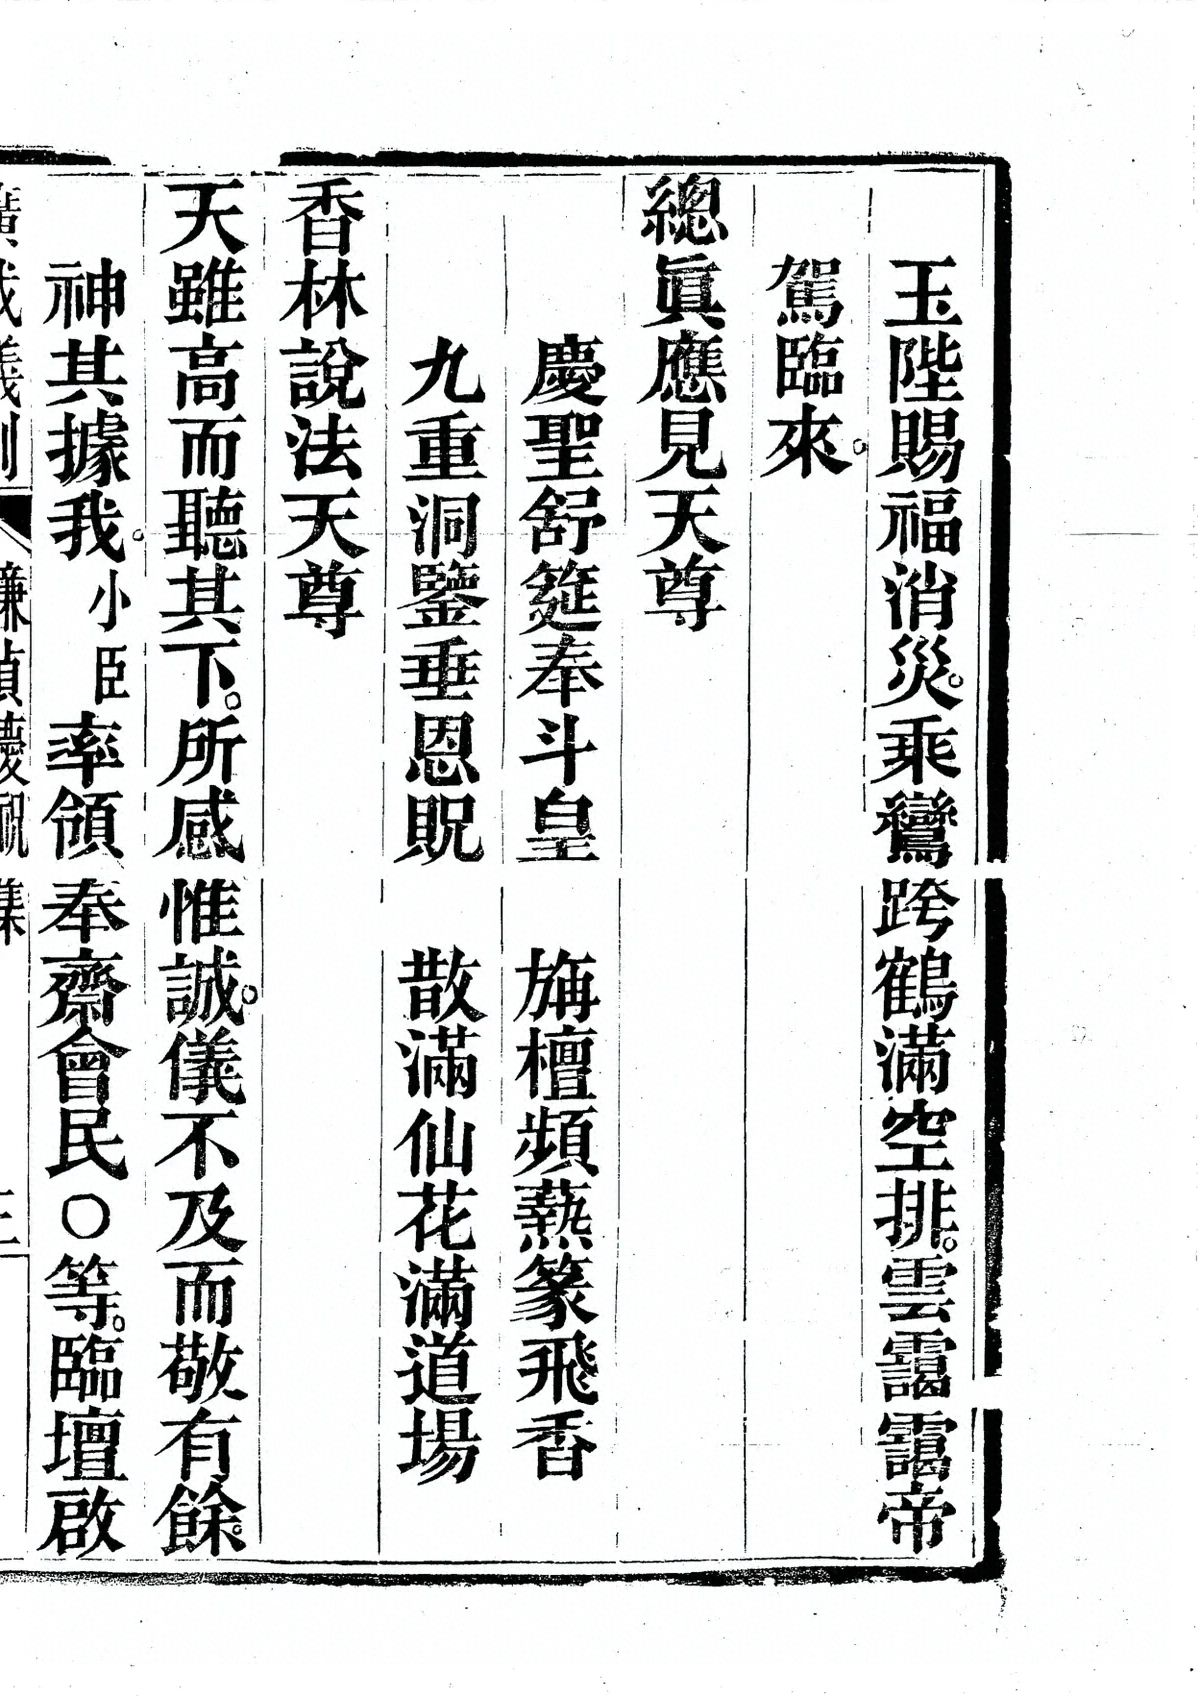 玉陛賜福消災。乘鸞跨鶴滿空排。雲靄靄帝
駕臨來。
總眞應見天尊
慶聖舒筵奉斗皇　旃檀頻爇篆飛香
九重洞鑒垂恩貺　散滿仙花滿道場
香林說法天尊
天雖高而聽其下。所感惟誠。儀不及而敬有餘。
神其據我。小臣率領奉齋會民〇等。臨壇啟